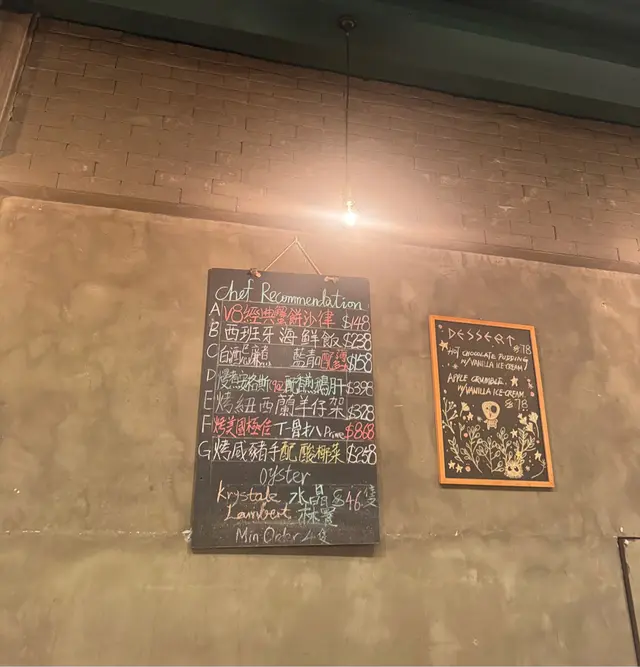 Chef Recommendation
A V8經典蟹餅沙律 $148
B 西班牙海鮮飯 $238
C 白酒忌廉煮 藍青口 $158
D 慢煮安格斯 配 鵝肝 $398
E 烤紐西蘭羊仔架 $328
F 烤美國極佳 丁骨扒 Prime $868
G 烤咸豬手配酸椰菜 $258
Oyster
Krystale 水晶 $46隻
Lambert 林寶
Min Order 4隻
DESSERT
$78
HOT CHOCOLATE PUDDING
W/VANILLA ICE-CREAM
APPLE CRUMBLE
W/VANILLA ICE-CREAM
$78